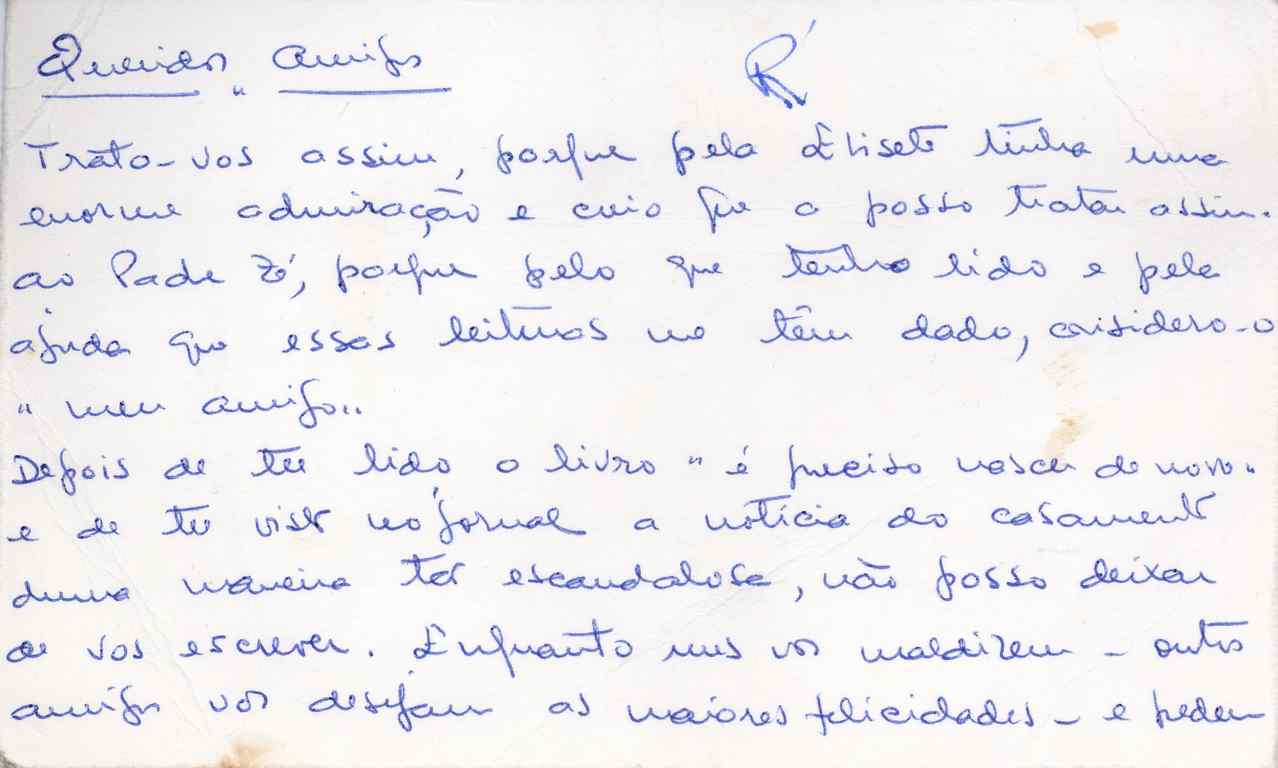 Queridos " Amigos R
Trato-vos assim, porque pela Elisete tinha uma
enorme admiração e creio que a posso tratar assim.
ao Padre Zé, porque pelo que tenho lido e pela
ajuda que essas leituras me têm dado, considero-o
" meu amigo"
Depois de ter lido o livro " é preciso nascer de novo"
e de ter visto no jornal a notícia do casamento
duma maneira tão escandalosa, não posso deixar
de vos escrever. Enquanto uns vos maldizem - outros
amigos vos desejam as maiores felicidades - e pedem